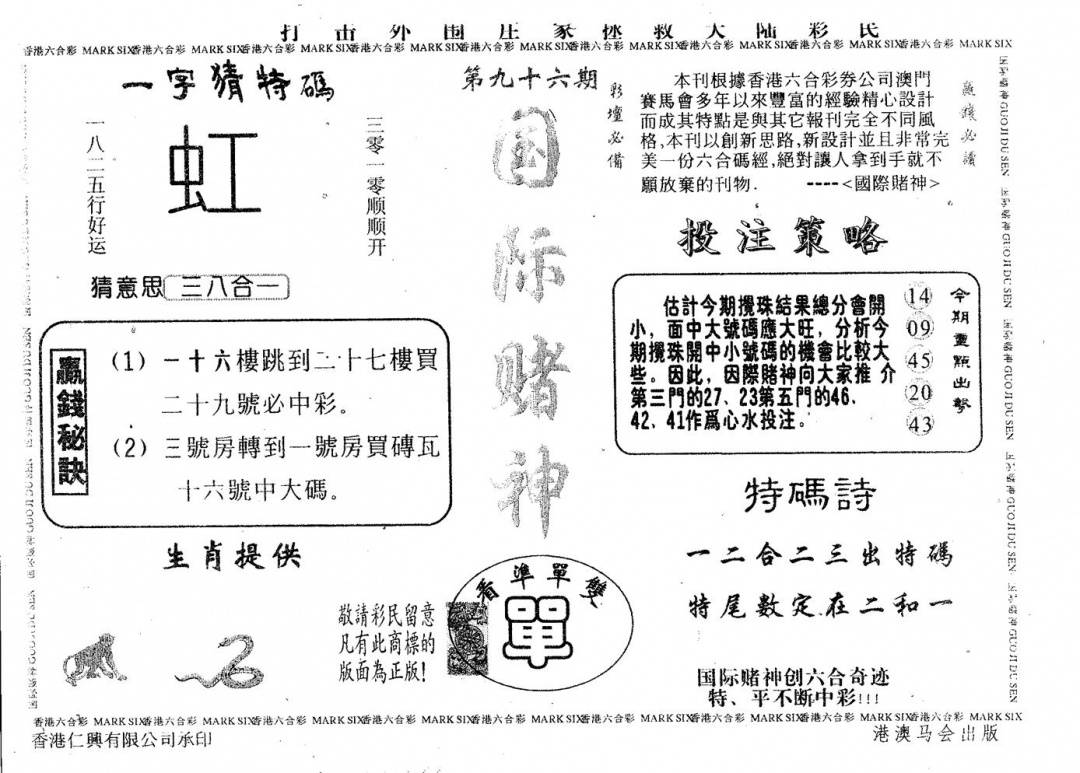 打击外围庄家拯救大陆彩民
香港六合彩 MARK SIX香港六合彩 MARK SIX香港六合彩 MARK SIX香港六合彩 MARK SIX香港六合彩 MARK SIX香港六合彩 MARK SIX香港六合彩 MARK SIX香港六合彩 MARK SIX香港六合彩 MARK SIX
一字猜特碼
一八二五行好运
虹
三零一零顺顺开
猜意思 三八合一
贏錢秘訣
(1) 一十六樓跳到二十七樓買
二十九號必中彩。
(2) 三號房轉到一號房買磚瓦
十六號中大碼。
生肖提供
敬請彩民留意
凡有此商標的
版面為正版!
第九十六期
国际赌神
看準單雙
單
彩壇必備
本刊根據香港六合彩券公司澳門
賽馬會多年以來豐富的經驗精心設計
而成其特點是與其它報刊完全不同風
格,本刊以創新思路,新設計並且非常完
美一份六合碼經,絕對讓人拿到手就不
願放棄的刊物. ----<國際賭神>
必讀
投注策略
估計今期攪珠結果總分會開
小，面中大號碼應大旺，分析今
期攪珠開中小號碼的機會比較大
些。因此，因際賭神向大家推介
第三門的27、23第五門的46、
42、41作爲心水投注。
14
09
45
20
43
今期重點出擊
特碼詩
一二合二三出特碼
特尾數定在二和一
国际赌神创六合奇迹
特、平不断中彩!!!
GUO JI DU SEN
香港六合彩 MARK SIX香港六合彩 MARK SIX香港六合彩 MARK SIX香港六合彩 MARK SIX香港六合彩 MARK SIX香港六合彩 MARK SIX香港六合彩 MARK SIX香港六合彩 MARK SIX香港六合彩 MARK SIX
香港仁興有限公司承印
港澳马会出版